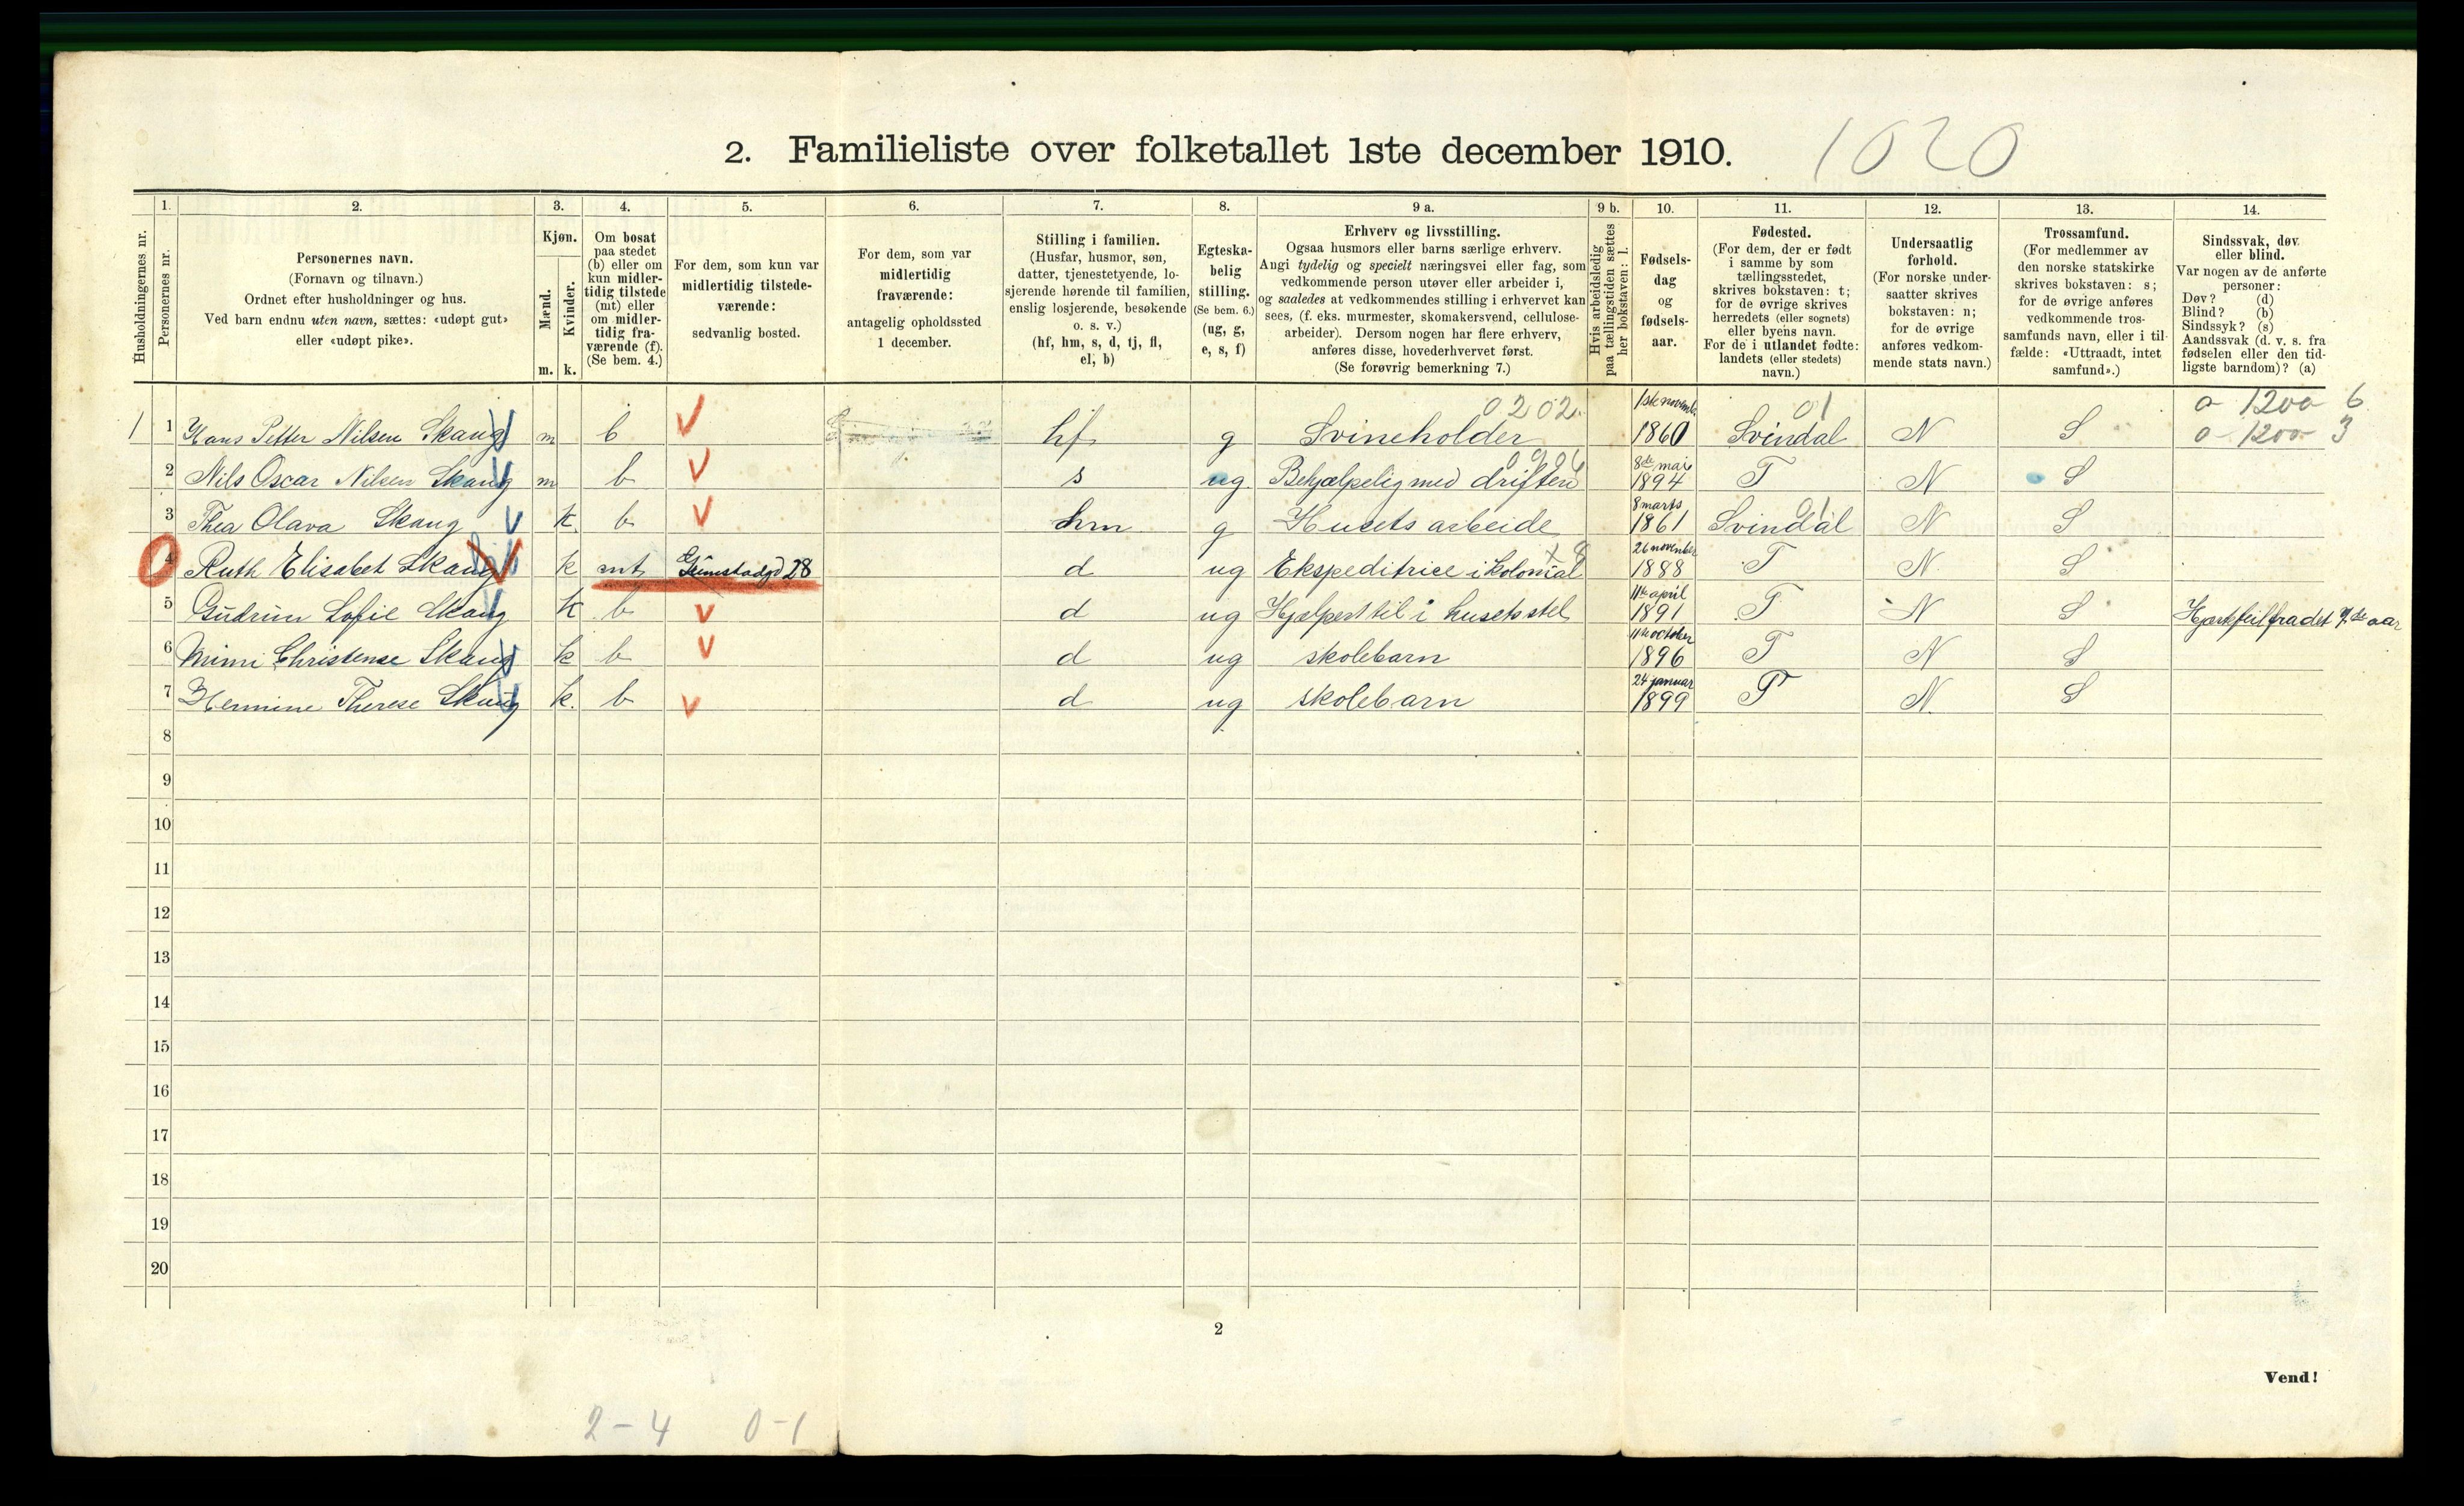 2. Familieliste over folketallet 1ste december 1910.
1020
1. 2. 3. 4. 5. 6. 7. 8. 9 a. 9 b. 10. 11. 12. 13. 14.
Husholdningernes nr.
Personernes nr.
Personernes navn.
(Fornavn og tilnavn.)
Ordnet efter husholdninger og hus.
Ved barn endnu uten navn, sættes: «udøpt gut»
eller «udøpt pike».
Kjøn.
Mænd.
Kvinder.
m. k.
Om bosat
paa stedet
(b) eller om
kun midler-
tidig tilstede
(mt) eller
om midler-
tidig fra-
værende (f).
(Se bem. 4.)
For dem, som kun var
midlertidig tilstede-
værende:
sedvanlig bosted.
For dem, som var
midlertidig
fraværende:
antagelig opholdssted
1 december.
Stilling i familien.
(Husfar, husmor, søn,
datter, tjenestetyende, lo-
sjerende hørende til familien,
enslig losjerende, besøkende
o. s. v.)
(hf, hm, s, d, tj, fl,
el, b)
Egteska-
belig
stilling.
(Se bem. 6.)
(ug, g,
e, s, f)
Erhverv og livsstilling.
Ogsaa husmors eller barns særlige erhverv.
Angi tydelig og specielt næringsvei eller fag, som
vedkommende person utøver eller arbeider i,
og saaledes at vedkommendes stilling i erhvervet kan
sees, (f. eks. murmester, skomakersvend, cellulose-
arbeider). Dersom nogen har flere erhverv,
anføres disse, hovederhvervet først.
(Se forøvrig bemerkning 7.)
Hvis arbeidsledig
paa tællingstiden sættes
her bokstaven: l.
Fødsels-
dag
og
fødsels-
aar.
Fødested.
(For dem, der er født
i samme by som
tællingsstedet,
skrives bokstaven: t;
for de øvrige skrives
herredets (eller sognets)
eller byens navn.
For de i utlandet fødte:
landets (eller stedets)
navn.)
Undersaatlig
forhold.
(For norske under-
saatter skrives
bokstaven: n;
for de øvrige
anføres vedkom-
mende stats navn.)
Trossamfund.
(For medlemmer av
den norske statskirke
skrives bokstaven: s;
for de øvrige anføres
vedkommende tros-
samfunds navn, eller i til-
fælde: «Uttraadt, intet
samfund».)
Sindssvak, døv
eller blind.
Var nogen av de anførte
personer:
Døv? (d)
Blind? (b)
Sindssyk? (s)
Aandssvak (d. v. s. fra
fødselen eller den tid-
ligste barndom)? (a)
0202. 1ste novemb. 01 0 1200 6
1 1 Hans Petter Nilsen Skaug m b hf g Svineholder 1860 Svindal N S 0 1200 3
8de mai
2 Nils Oscar Nilsen Skaug m b s ug Behjælpelig med driften 1894 T N S
8 marts 01
3 Thea Olava Skaug k. b hm g Husets arbeide 1861 Svindal N S
x 8 26 november
4 Ruth Elisabet Skaug k mt 28 d ug Ekspeditrice i kolonial 1888 T N. S
11te april
5 Gudrun Sofie Skaug k b d ug Hjælper til i husets stel 1891 T N S Hjertfeil fra det 7.de aar
11te october
6 Mimi Christense Skaug k b d ug skolebarn 1896 T N S
24 januar
7 Hermine Therese Skaug k. b d ug skolebarn 1899 T N. S
8
9
10
11
12
13
14
15
16
17
18
19
20
2
Vend!
2-4 0-1